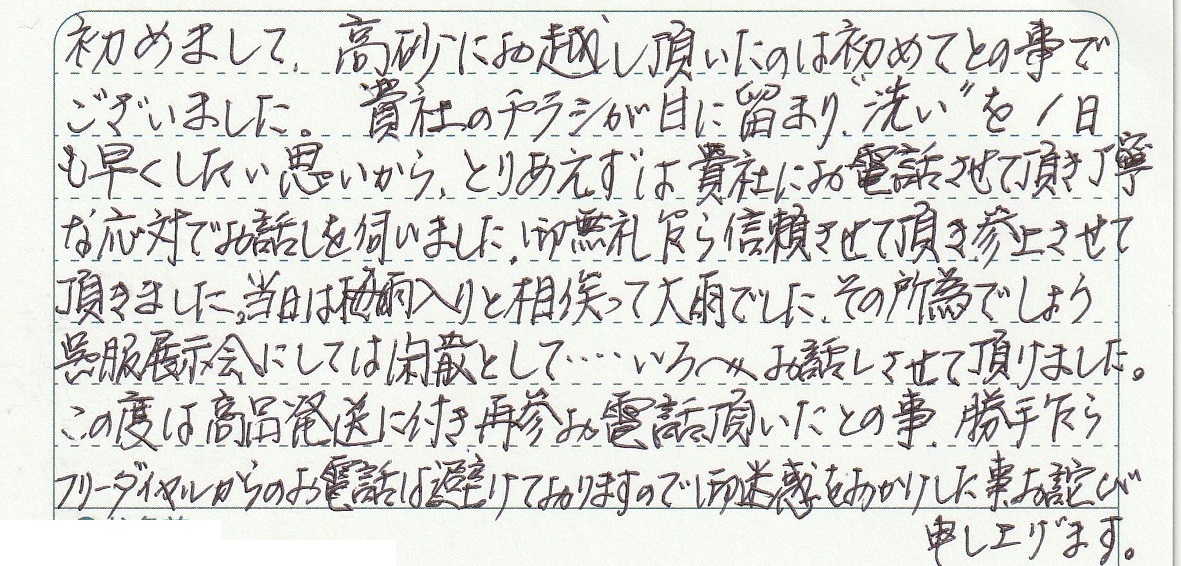 初めまして、高砂にお越し頂いたのは初めてとの事で
ございました。貴社のチラシが目に留まり、“洗い”を1日
も早くしたい思いから、とりあえずは貴社にお電話させて頂き丁寧
な応対でお話しを伺いました、御無礼乍ら信頼させて頂き参上させて
頂きました、当日は梅雨入りと相俟って大雨でした、その所為でしょう
呉服展示会にしては閑散として‥‥いろへ〃お話しさせて頂けました。
この度は商品発送に付き再参お電話頂いたとの事、勝手乍ら
フリーダイヤルからのお電話は避けておりますので御迷惑をおかけした事お詫び
申し上げます。